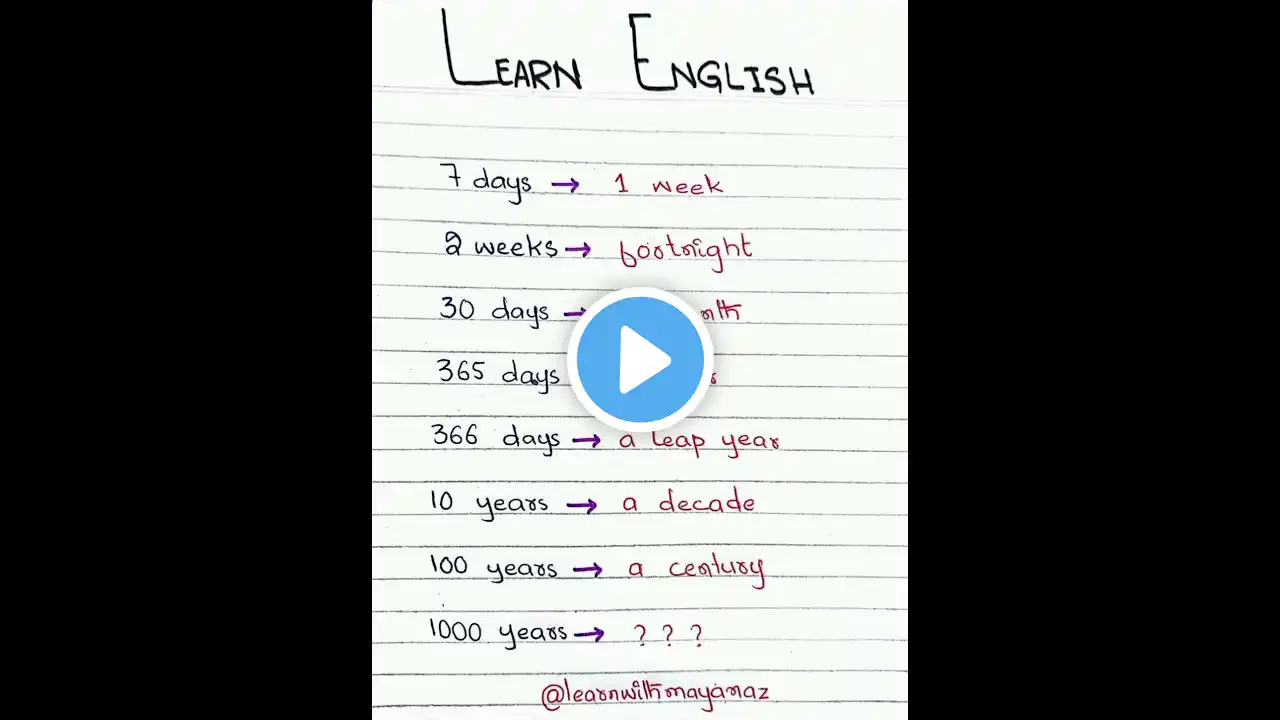 LEARN ENGLISH
7 days → 1 week
2 weeks → fortnight
30 days →
365 days
366 days → a leap year
10 years → a decade
100 years → a century
1000 years → ? ? ?
@learnwithmayanaz